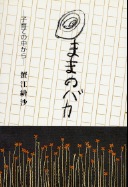 ままのバカ
子育ての中から
蟹江緋沙